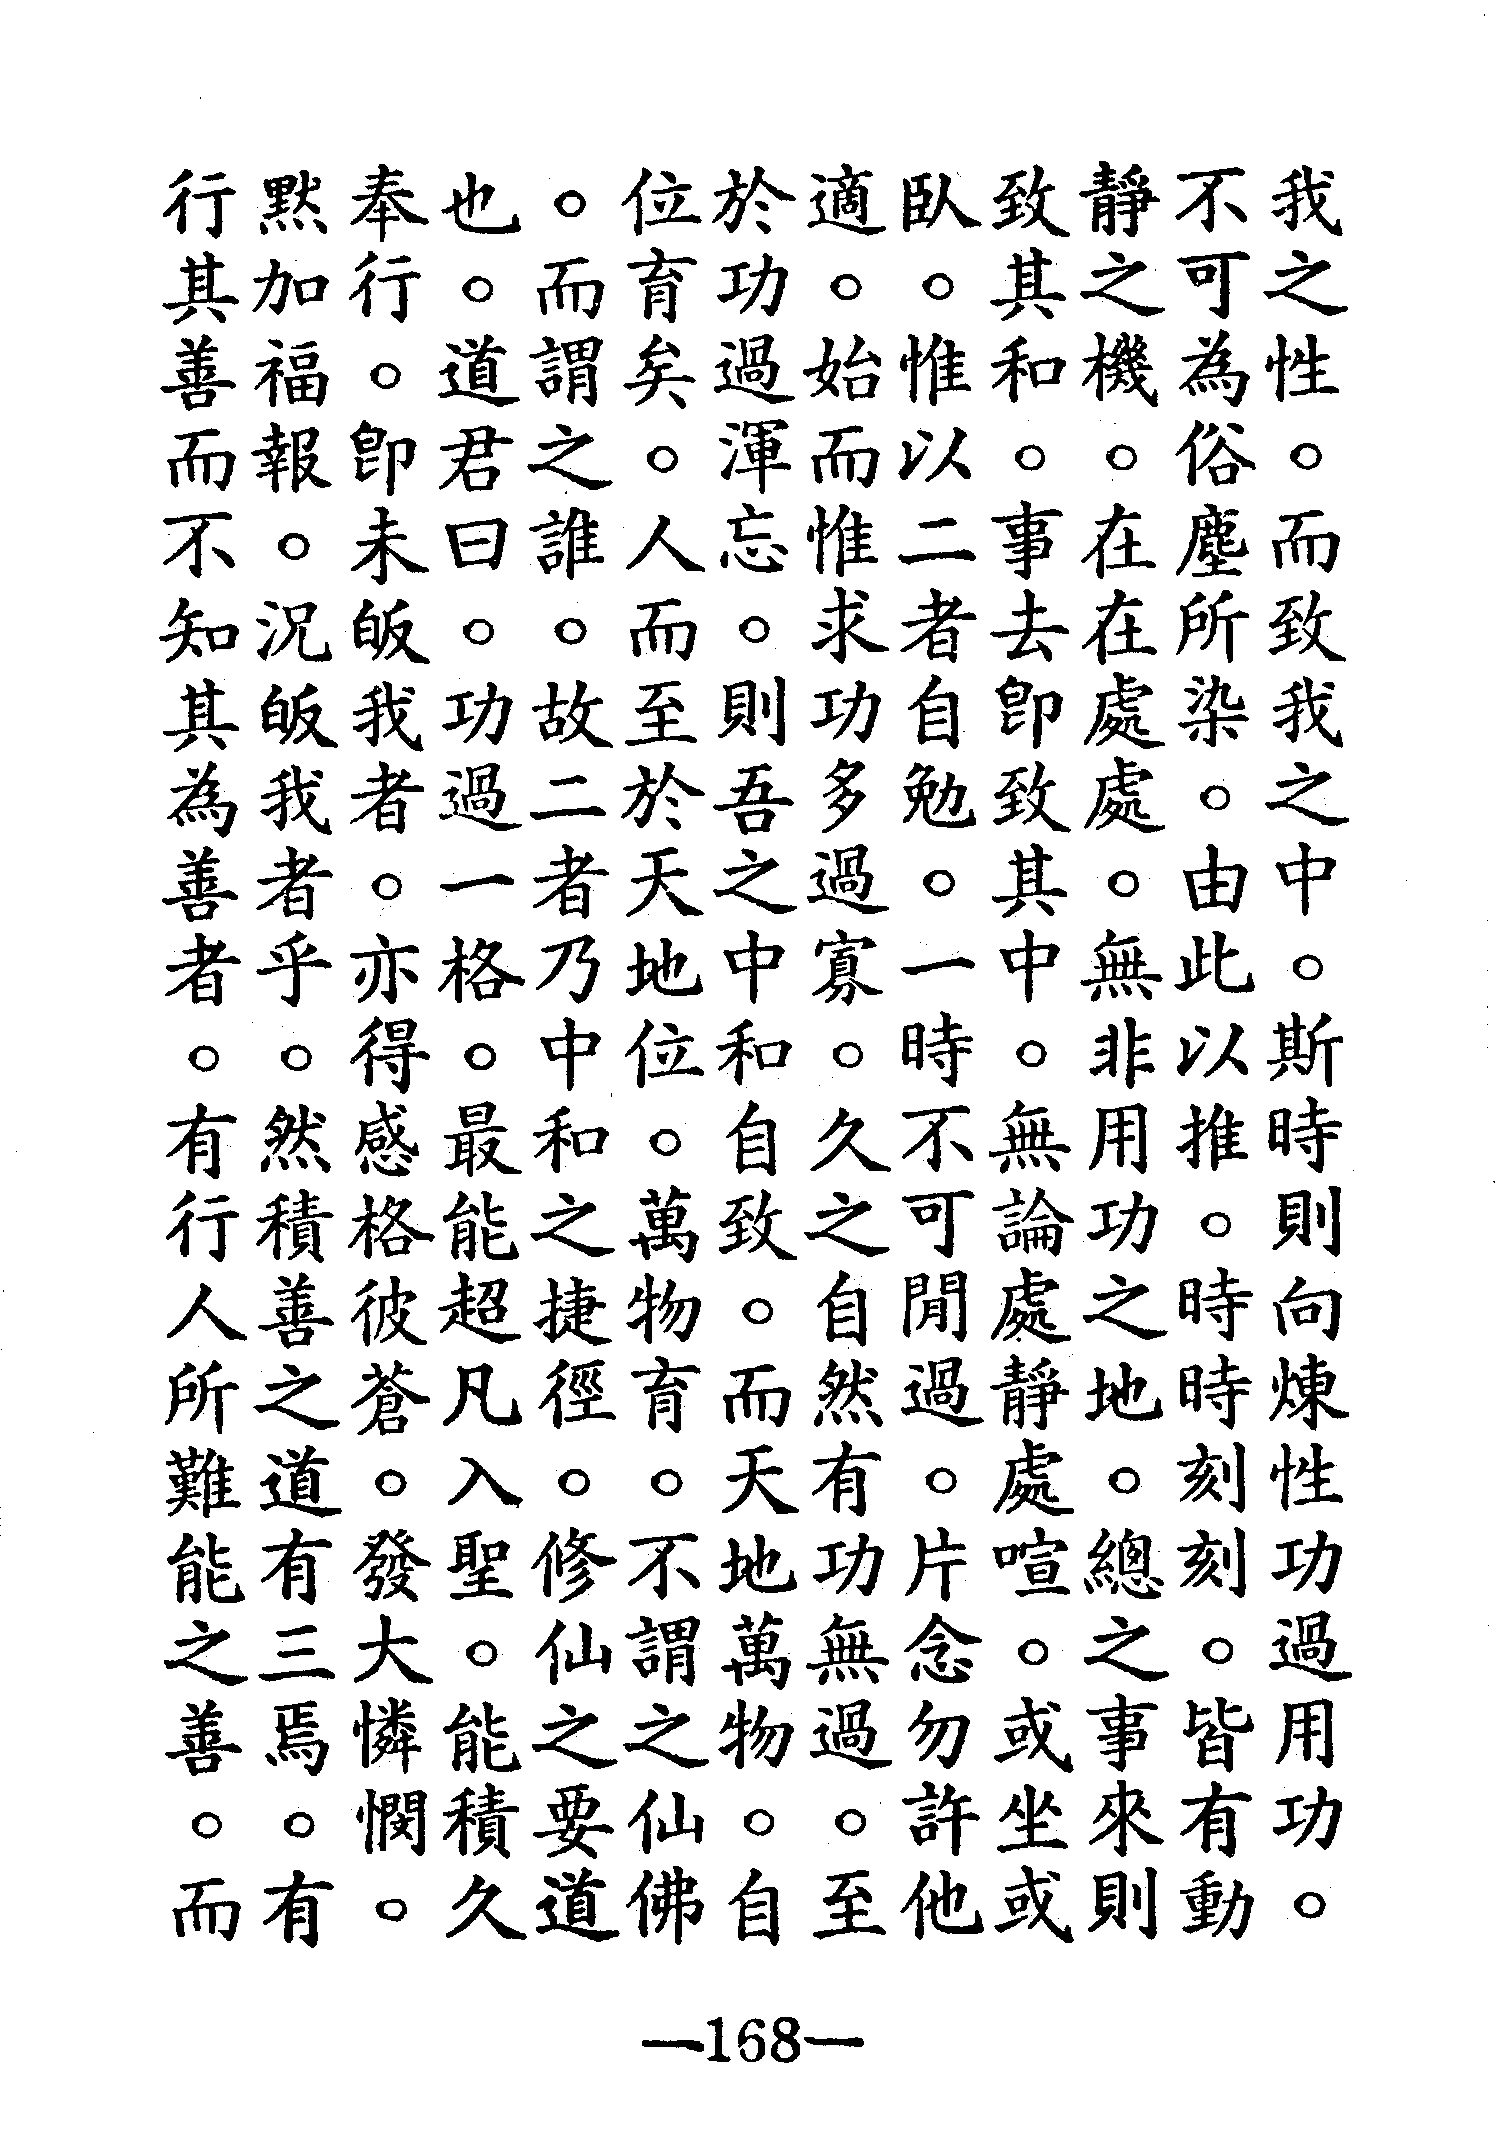 我之性。而致我之中。斯時則向煉性功過用功。
不可為俗塵所染。由此以推。時時刻刻。皆有動
靜之機。在在處處。無非用功之地。總之事來則
致其和。事去卽致其中。無論處靜處喧。或坐或
臥。惟以二者自勉。一時不可閒過。片念勿許他
適。始而惟求功多過寡。久之自然有功無過。至
於功過渾忘。則吾之中和自致。而天地萬物。自
位育矣。人而至於天地位。萬物育。不謂之仙佛
。而謂之誰。故二者乃中和之捷徑。修仙之要道
也。道君曰。功過一格。最能超凡入聖。能積久
奉行。卽未皈我者。亦得感格彼蒼。發大憐憫。
默加福報。況皈我者乎。然積善之道有三焉。有
行其善而不知其為善者。有行人所難能之善。而
—168—